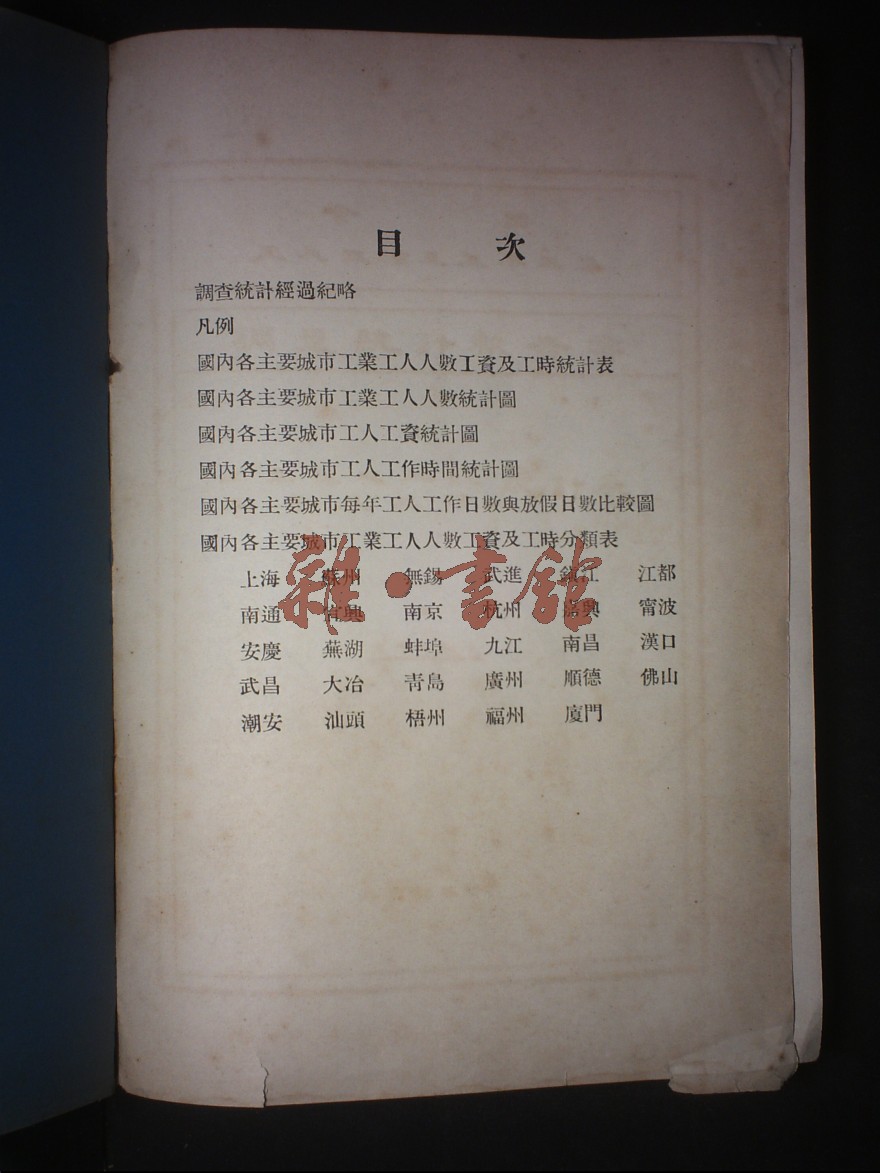 目 次
調查統計經過紀略
凡例
國內各主要城市工業工人人數工資及工時統計表
國內各主要城市工業工人人數統計圖
國內各主要城市工人工資統計圖
國內各主要城市工人工作時間統計圖
國內各主要城市每年工人工作日數與放假日數比較圖
國內各主要城市工業工人人數工資及工時分類表
上海 蘇州 無錫 武進 鎮江 江都
南通 宜興 南京 杭州 嘉興 甯波
安慶 蕪湖 蚌埠 九江 南昌 漢口
武昌 大冶 靑島 廣州 順德 佛山
潮安 汕頭 梧州 福州 廈門
雜·書館